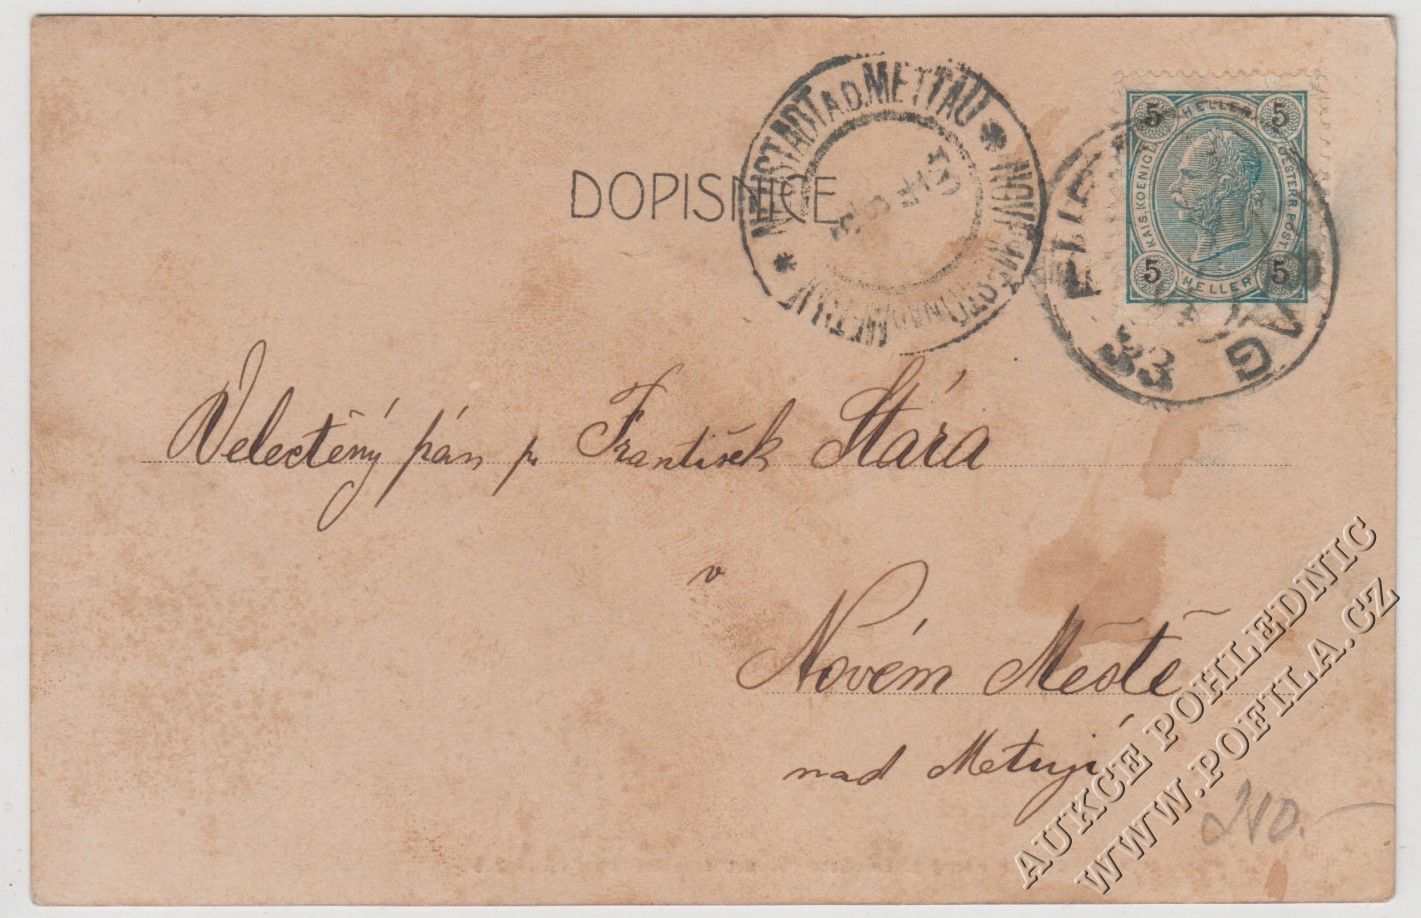 DOPISNICE
NEUSTADT A.D. METTAU * NOVÉ MĚSTO NAD METUJÍ *
KAIS. KOENIGL. OESTERR. POST
5 HELLER 5
5 HELLER 5
33
Velectěný pán p. František Stára
v
Novém Městě
nad Metují
AUKCE POHLEDNIC
WWW.POFILA.CZ
210.-